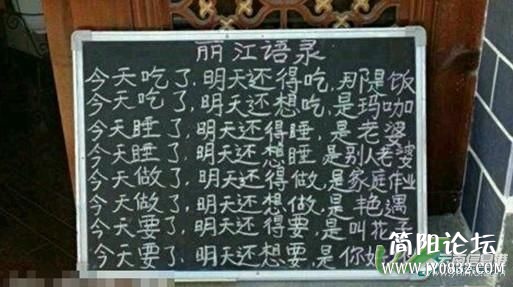 丽江语录
今天吃了,明天还得吃,那是饭
今天吃了,明天还想吃,是玛咖
今天睡了,明天还得睡,是老婆
今天睡了,明天还想睡,是别人老婆
今天做了,明天还得做,是家庭作业
今天做了,明天还想做,是艳遇
今天要了,明天还得要,是叫花
今天要了,明天还想要,是你
简阳论坛
www.jy0832.com